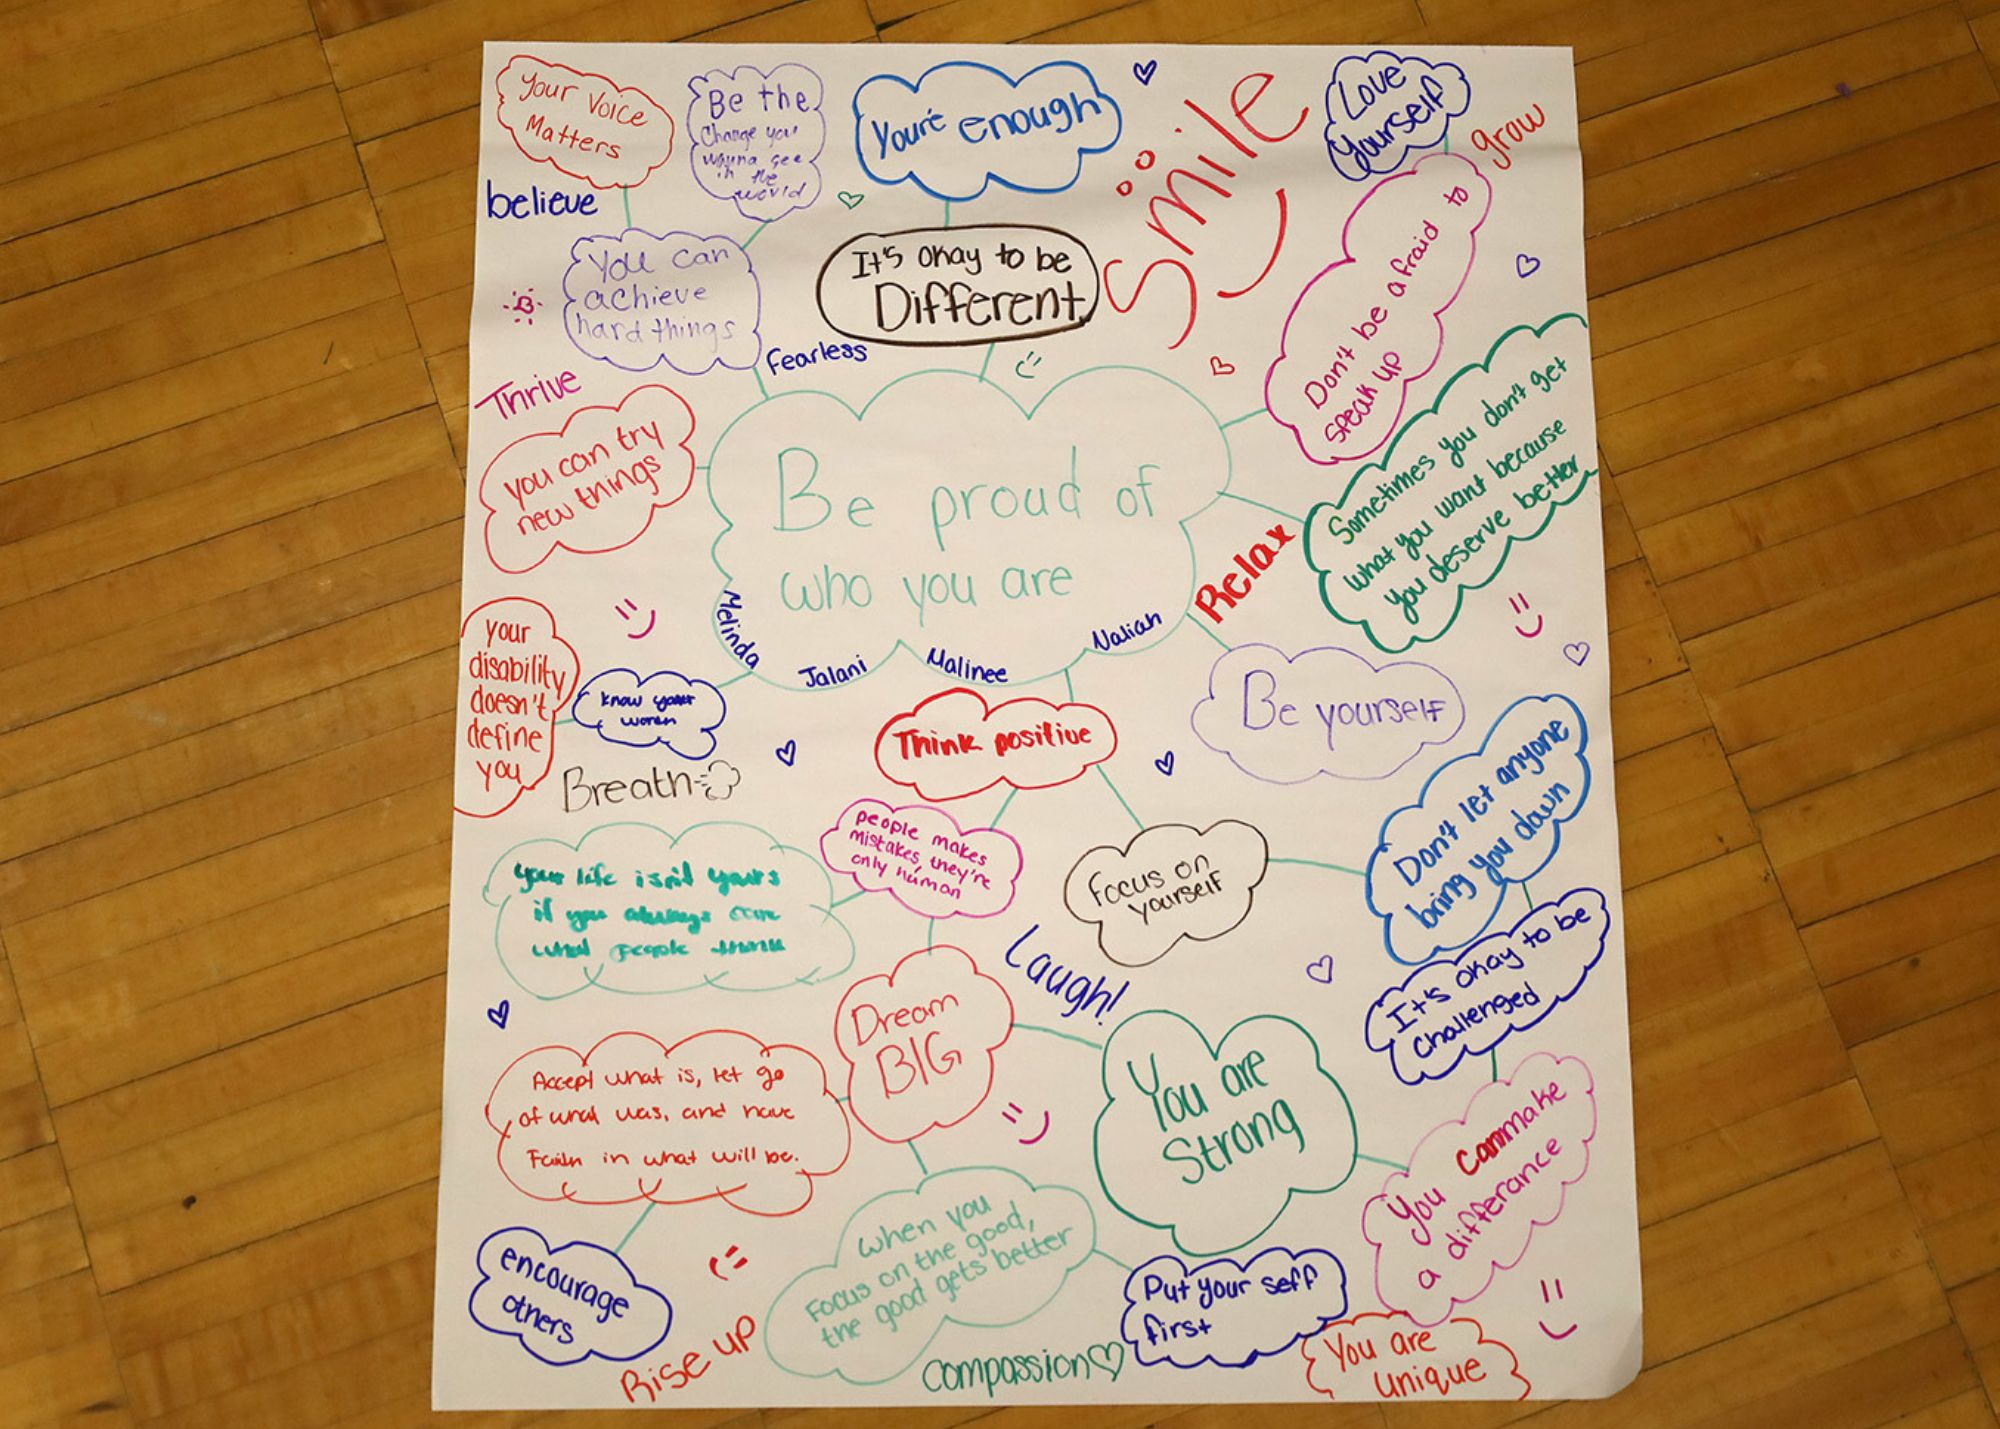 Your Voice
Matters
Be the
Change you
wanna see
in the
world
You're enough
Smile
Love
Yourself
grow
believe
You can
achieve
hard things
It's okay to be
Different
Don't be afraid to
speak up
fearless
Thrive
you can try
new things
Be proud of
who you are
Melinda
Jalani
Malinee
Naliah
Relax
Sometimes you don't get
what you want because
you deserve better
your
disability
doesn't
define
you
know your
Breath
Think positive
Be yourself
people makes
mistakes, they're
only human
Focus on
yourself
Don't let anyone
bring you down
your life isn't yours
if you always care
what people think
Laugh!
It's okay to be
Challenged
Dream
BIG
Accept what is, let go
of what was, and have
Faith in what will be.
You are
Strong
You can make
a differance
encourage
others
Rise up
When you
Focus on the good,
the good gets better
Compassion
Put your self
first
You are
unique